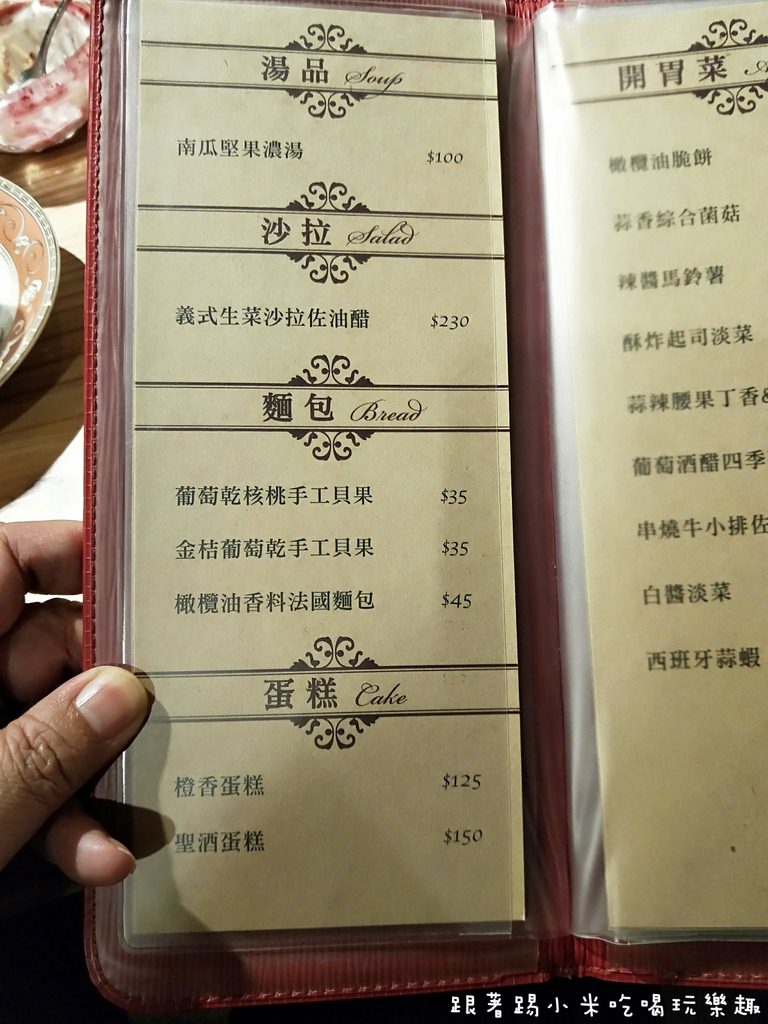 湯品 Soup
南瓜堅果濃湯 $100
沙拉 Salad
義式生菜沙拉佐油醋 $230
麵包 Bread
葡萄乾核桃手工貝果 $35
金桔葡萄乾手工貝果 $35
橄欖油香料法國麵包 $45
蛋糕 Cake
橙香蛋糕 $125
聖酒蛋糕 $150
開胃菜 A
橄欖油脆餅
蒜香綜合菌菇
辣醬馬鈴薯
酥炸起司淡菜
蒜辣腰果丁香&
葡萄酒醋四季
串燒牛小排佐
白醬淡菜
西班牙蒜蝦
跟著踢小米吃喝玩樂趣